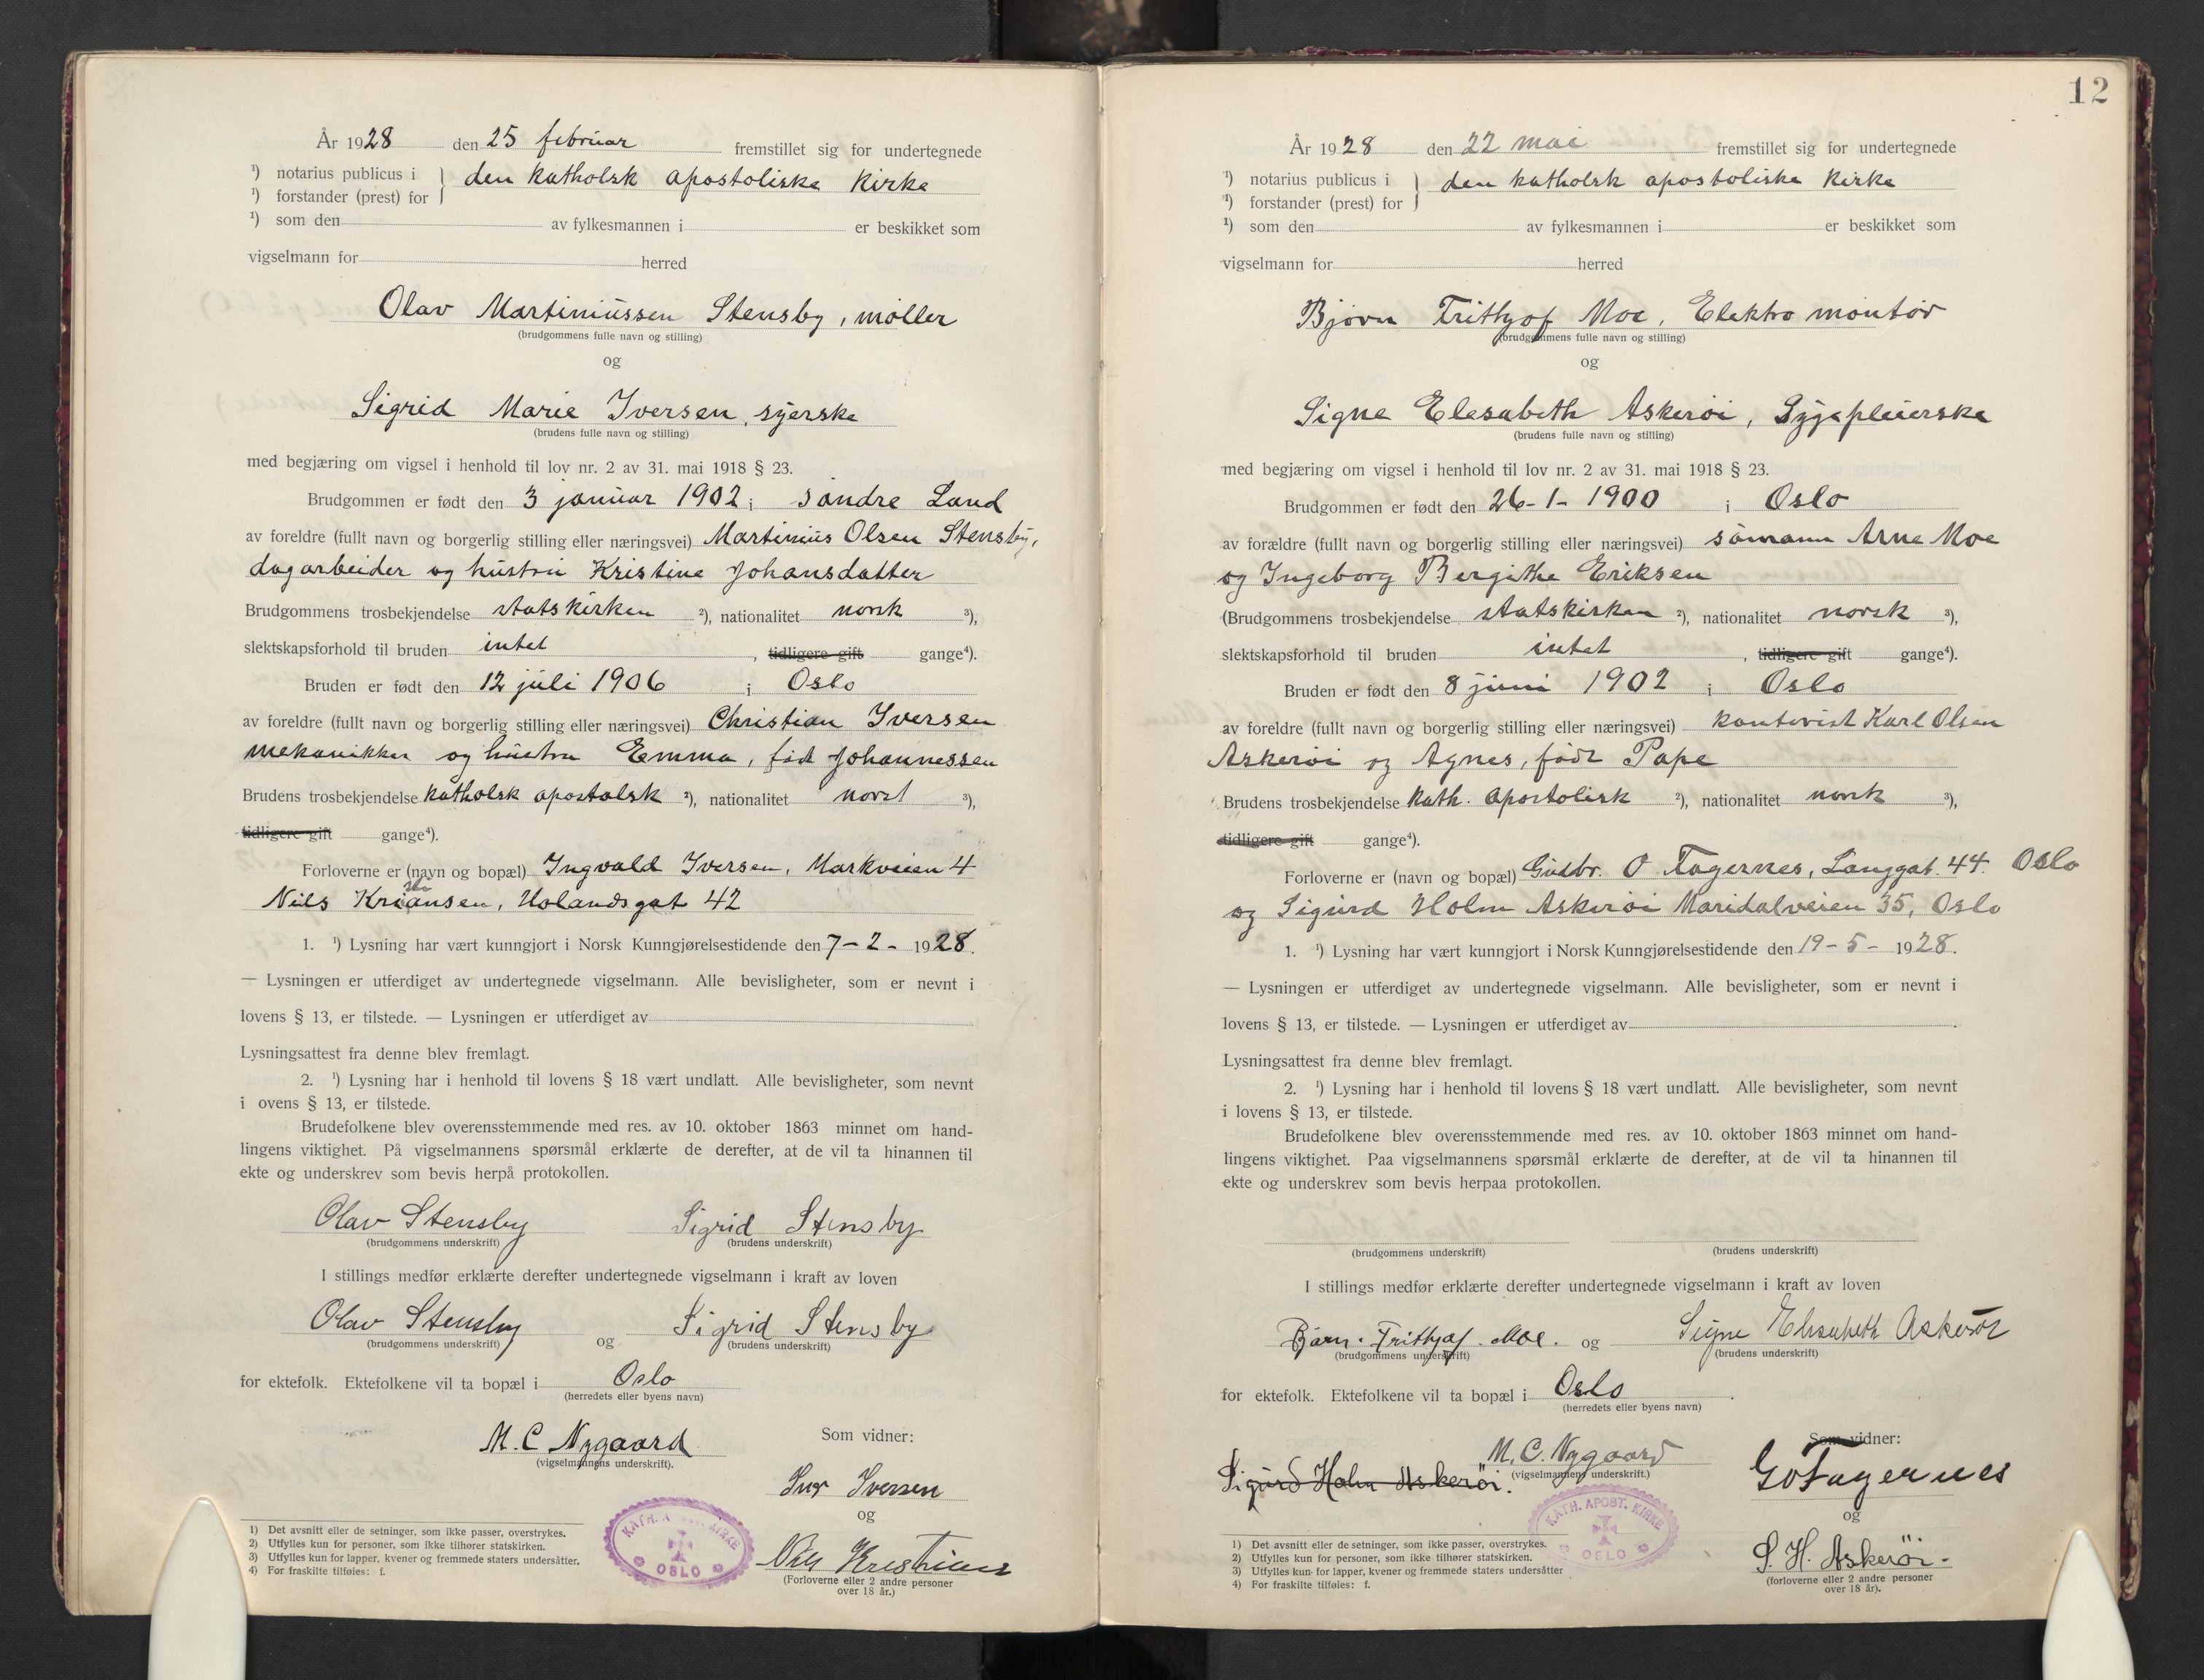 År 1928 den 25 februar fremstillet sig for undertegnede
¹) notarius publicus i
¹) forstander (prest) for } den katholsk apostoliske Kirke
¹) som den av fylkesmannen i er beskikket som
vigselmann for herred
Olav Martiniussen Stensby, møller
(brudgommens fulle navn og stilling)
og
Sigrid Marie Iversen, syerske
(brudens fulle navn og stilling)
med begjæring om vigsel i henhold til lov nr. 2 av 31. mai 1918 § 23.
Brudgommen er født den 3 januar 1902 i søndre Land
av foreldre (fullt navn og borgerlig stilling eller næringsvei) Martinius Olsen Stensby,
dagarbeider og hustru Kristine Johansdatter
Brudgommens trosbekjendelse statskirken ²), nationalitet norsk ³),
slektskapsforhold til bruden intet , tidligere gift gange⁴).
Bruden er født den 12 juli 1906 i Oslo
av foreldre (fullt navn og borgerlig stilling eller næringsvei) Christian Iversen
mekanikker og hustru Emma, født Johannessen
Brudens trosbekjendelse katholsk apostolsk ²), nationalitet norsk ³),
tidligere gift gange⁴).
Forloverne er (navn og bopæl) Ingvald Iversen, Markveien 4
Nils Kristiansen, Holandsgat 42
1. ¹) Lysning har vært kunngjort i Norsk Kunngjørelsestidende den 7-2- 1928.
— Lysningen er utferdiget av undertegnede vigselmann. Alle bevisligheter, som er nevnt i
lovens § 13, er tilstede. — Lysningen er utferdiget av
Lysningsattest fra denne blev fremlagt.
2. ¹) Lysning har i henhold til lovens § 18 vært undlatt. Alle bevisligheter, som nevnt
i ovens § 13, er tilstede.
Brudefolkene blev overensstemmende med res. av 10. oktober 1863 minnet om hand-
lingens viktighet. På vigselmannens spørsmål erklærte de derefter, at de vil ta hinannen til
ekte og underskrev som bevis herpå protokollen.
Olav Stensby Sigrid Stensby
(brudgommens underskrift) (brudens underskrift)
I stillings medfør erklærte derefter undertegnede vigselmann i kraft av loven
Olav Stensby og Sigrid Stensby
(brudgommens underskrift) (brudens underskrift)
for ektefolk. Ektefolkene vil ta bopæl i Oslo
(herredets eller byens navn)
M. C Nygaard
(vigselmannens underskrift).
Som vidner:
Ingv Iversen
og
Nils Kristiansen
(Forloverne eller 2 andre personer
over 18 år.)
KATH. APOST. KIRKE
OSLO
1) Det avsnitt eller de setninger, som ikke passer, overstrykes.
2) Utfylles kun for personer, som ikke tilhører statskirken.
3) Utfylles kun for lapper, kvener og fremmede staters undersåtter.
4) For fraskilte tilføies: f.
12
År 1928 den 22 mai fremstillet sig for undertegnede
¹) notarius publicus i
¹) forstander (prest) for } den katholsk apostoliske Kirke
¹) som den av fylkesmannen i er beskikket som
vigselmann for herred
Bjørn Frithjof Moe, Elektro montør
(brudgommens fulle navn og stilling)
og
Signe Elesabeth Askerøi, Sygepleierske
(brudens fulle navn og stilling)
med begjæring om vigsel i henhold til lov nr. 2 av 31. mai 1918 § 23.
Brudgommen er født den 26-1-1900 i Oslo
av forældre (fullt navn og borgerlig stilling eller næringsvei) sømann Arne Moe
og Ingeborg Bergithe Eriksen
(Brudgommens trosbekjendelse statskirken ²), nationalitet norsk ³),
slektskapsforhold til bruden intet , tidligere gift gange⁴).
Bruden er født den 8 juni 1902 i Oslo
av foreldre (fullt navn og borgerlig stilling eller næringsvei) kontorist Karl Olsen
Askerøi og Agnes, født Pape
Brudens trosbekjendelse kath. apostolisk ²), nationalitet norsk ³),
tidligere gift gange⁴).
Forloverne er (navn og bopæl) Gudbr. O Fagernes, Langgat. 44. Oslo
og Sigurd Holm Askerøi Maridalveien 35, Oslo
1. ¹) Lysning har vært kunngjort i Norsk Kunngjørelsestidende den 19-5- 1928.
— Lysningen er utferdiget av undertegnede vigselmann. Alle bevisligheter, som er nevnt i
lovens § 13, er tilstede. — Lysningen er utferdiget av
Lysningsattest fra denne blev fremlagt.
2. ¹) Lysning har i henhold til lovens § 18 vært undlatt. Alle bevisligheter, som nevnt
i lovens § 13, er tilstede.
Brudefolkene blev overensstemmende med res. av 10. oktober 1863 minnet om hand-
lingens viktighet. Paa vigselmannens spørsmål erklærte de derefter, at de vil ta hinannen til
ekte og underskrev som bevis herpaa protokollen.
(brudgommens underskrift) (brudens underskrift)
I stillings medfør erklærte derefter undertegnede vigselmann i kraft av loven
Bjørn. Frithjof. Moe. og Signe Elisabeth Askerøi
(brudgommens underskrift) (brudens underskrift)
for ektefolk. Ektefolkene vil ta bopæl i Oslo
(herredets eller byens navn)
M. C. Nygaard
(vigselmannens underskrift.)
Sigurd Holm Askerøi.
Som vidner:
G O Fagernes
og
S. H. Askerøi-
(forloverne eller 2 andre personer
over 18 år).
KATH. APOST. KIRKE
OSLO
1) Det avsnitt eller de setninger, som ikke passer, overstrykes.
2) Utfylles kun for personer, som ikke tilhører statskirken.
3) Utfylles kun for lapper, kvener og fremmede staters undersåtter
4) For fraskilte tilføies: f.